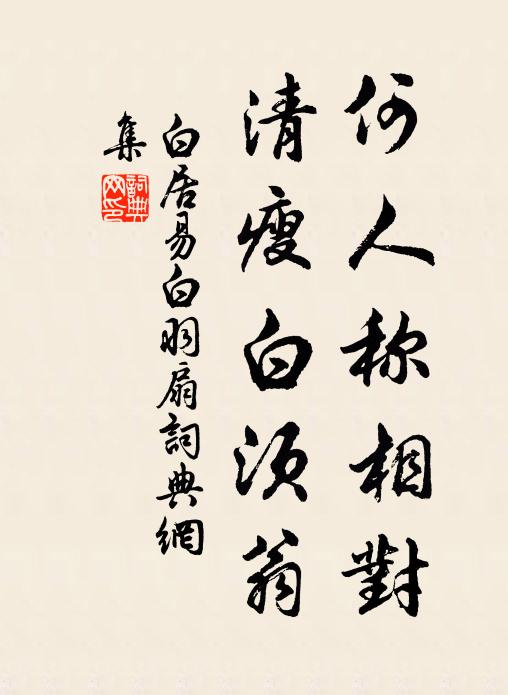 何人称相對
清瘦白须翁
白居易白羽扇詞典網
集
詞典網印